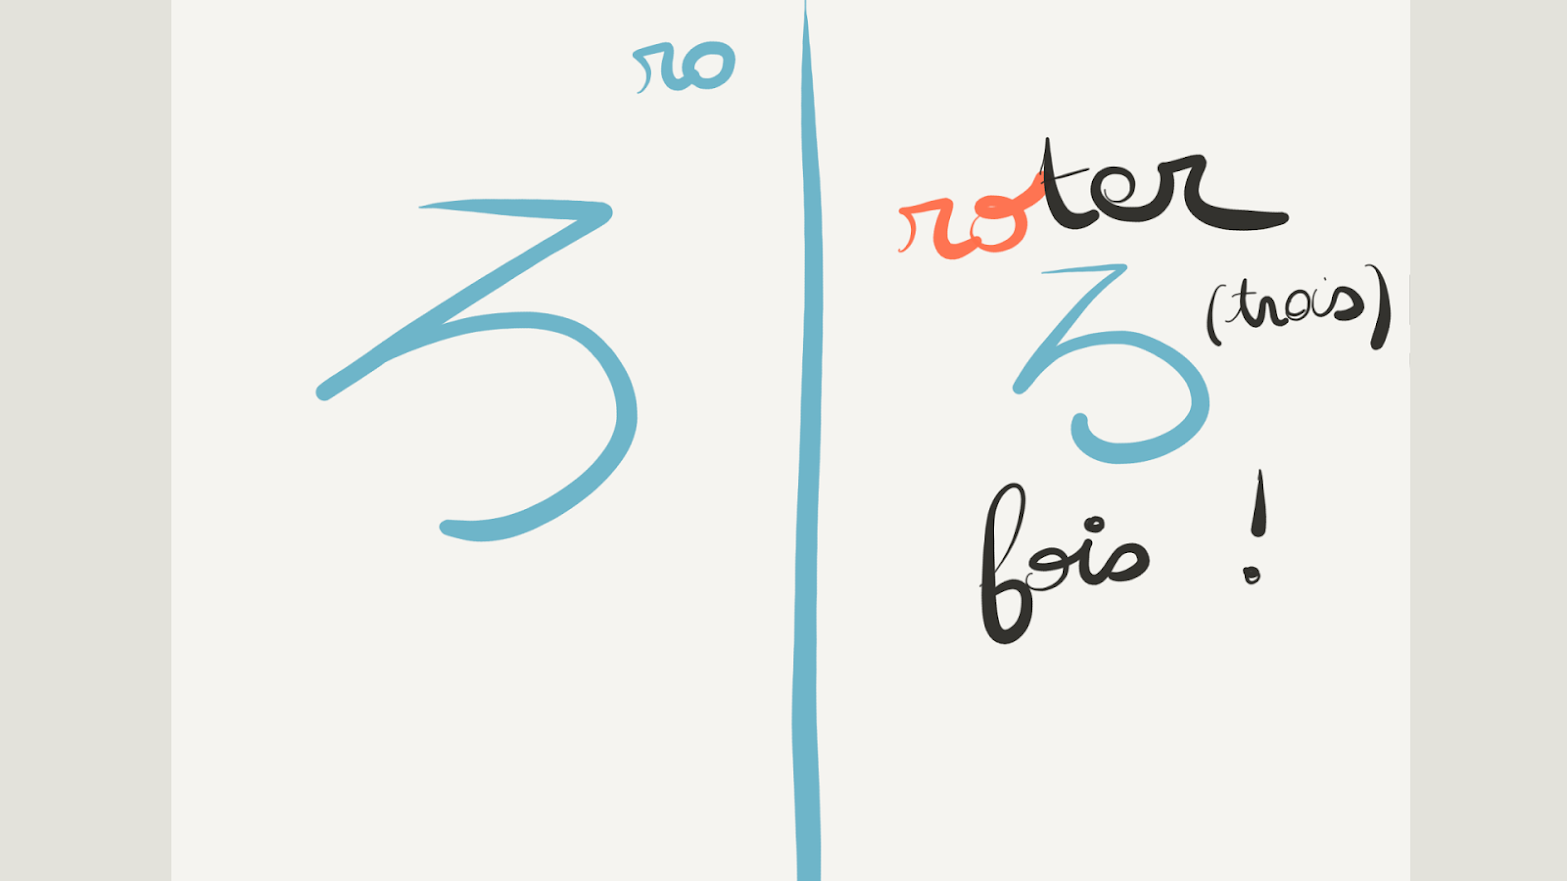 ro
ろ
roter
ろ (trois)
fois !